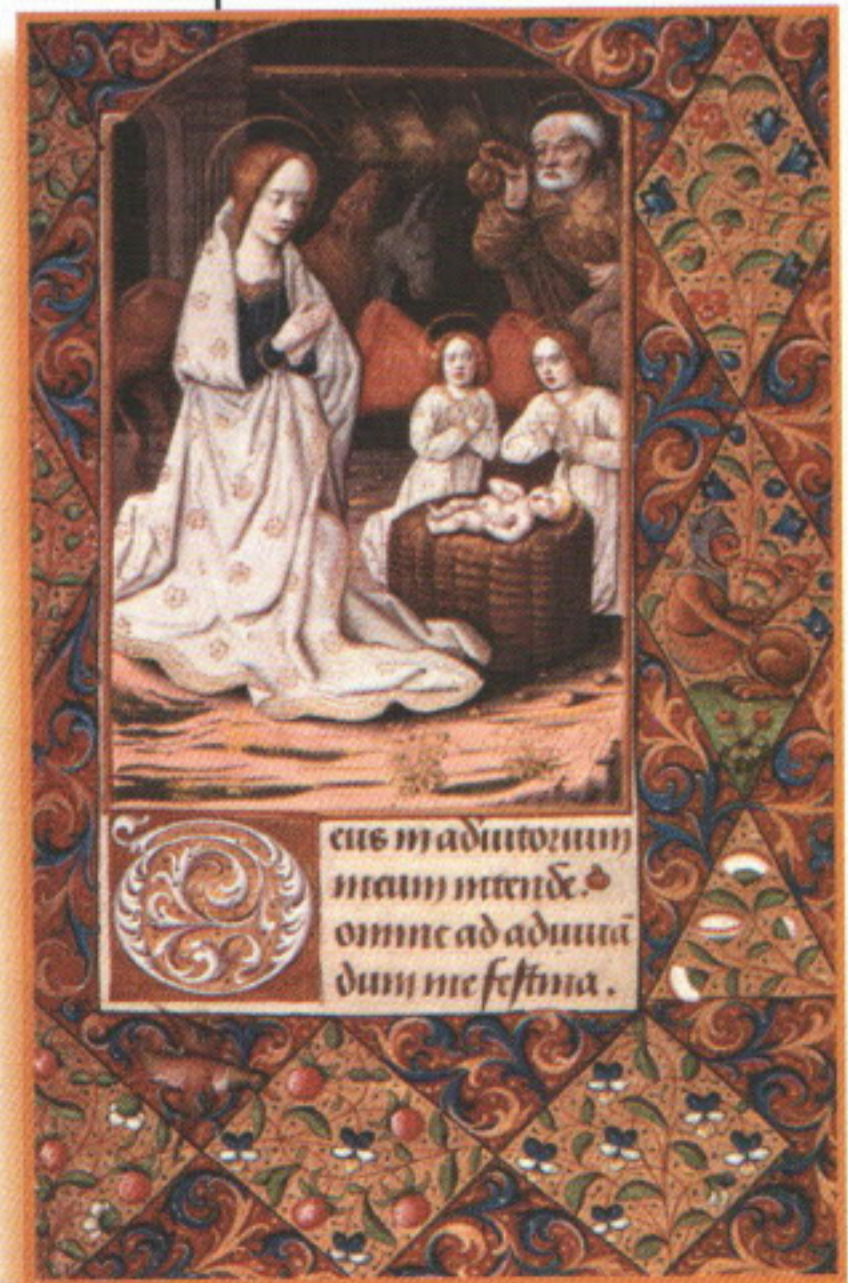 Deus in adiutorium
meum intende.
omine ad adiuuā
dum me festina.